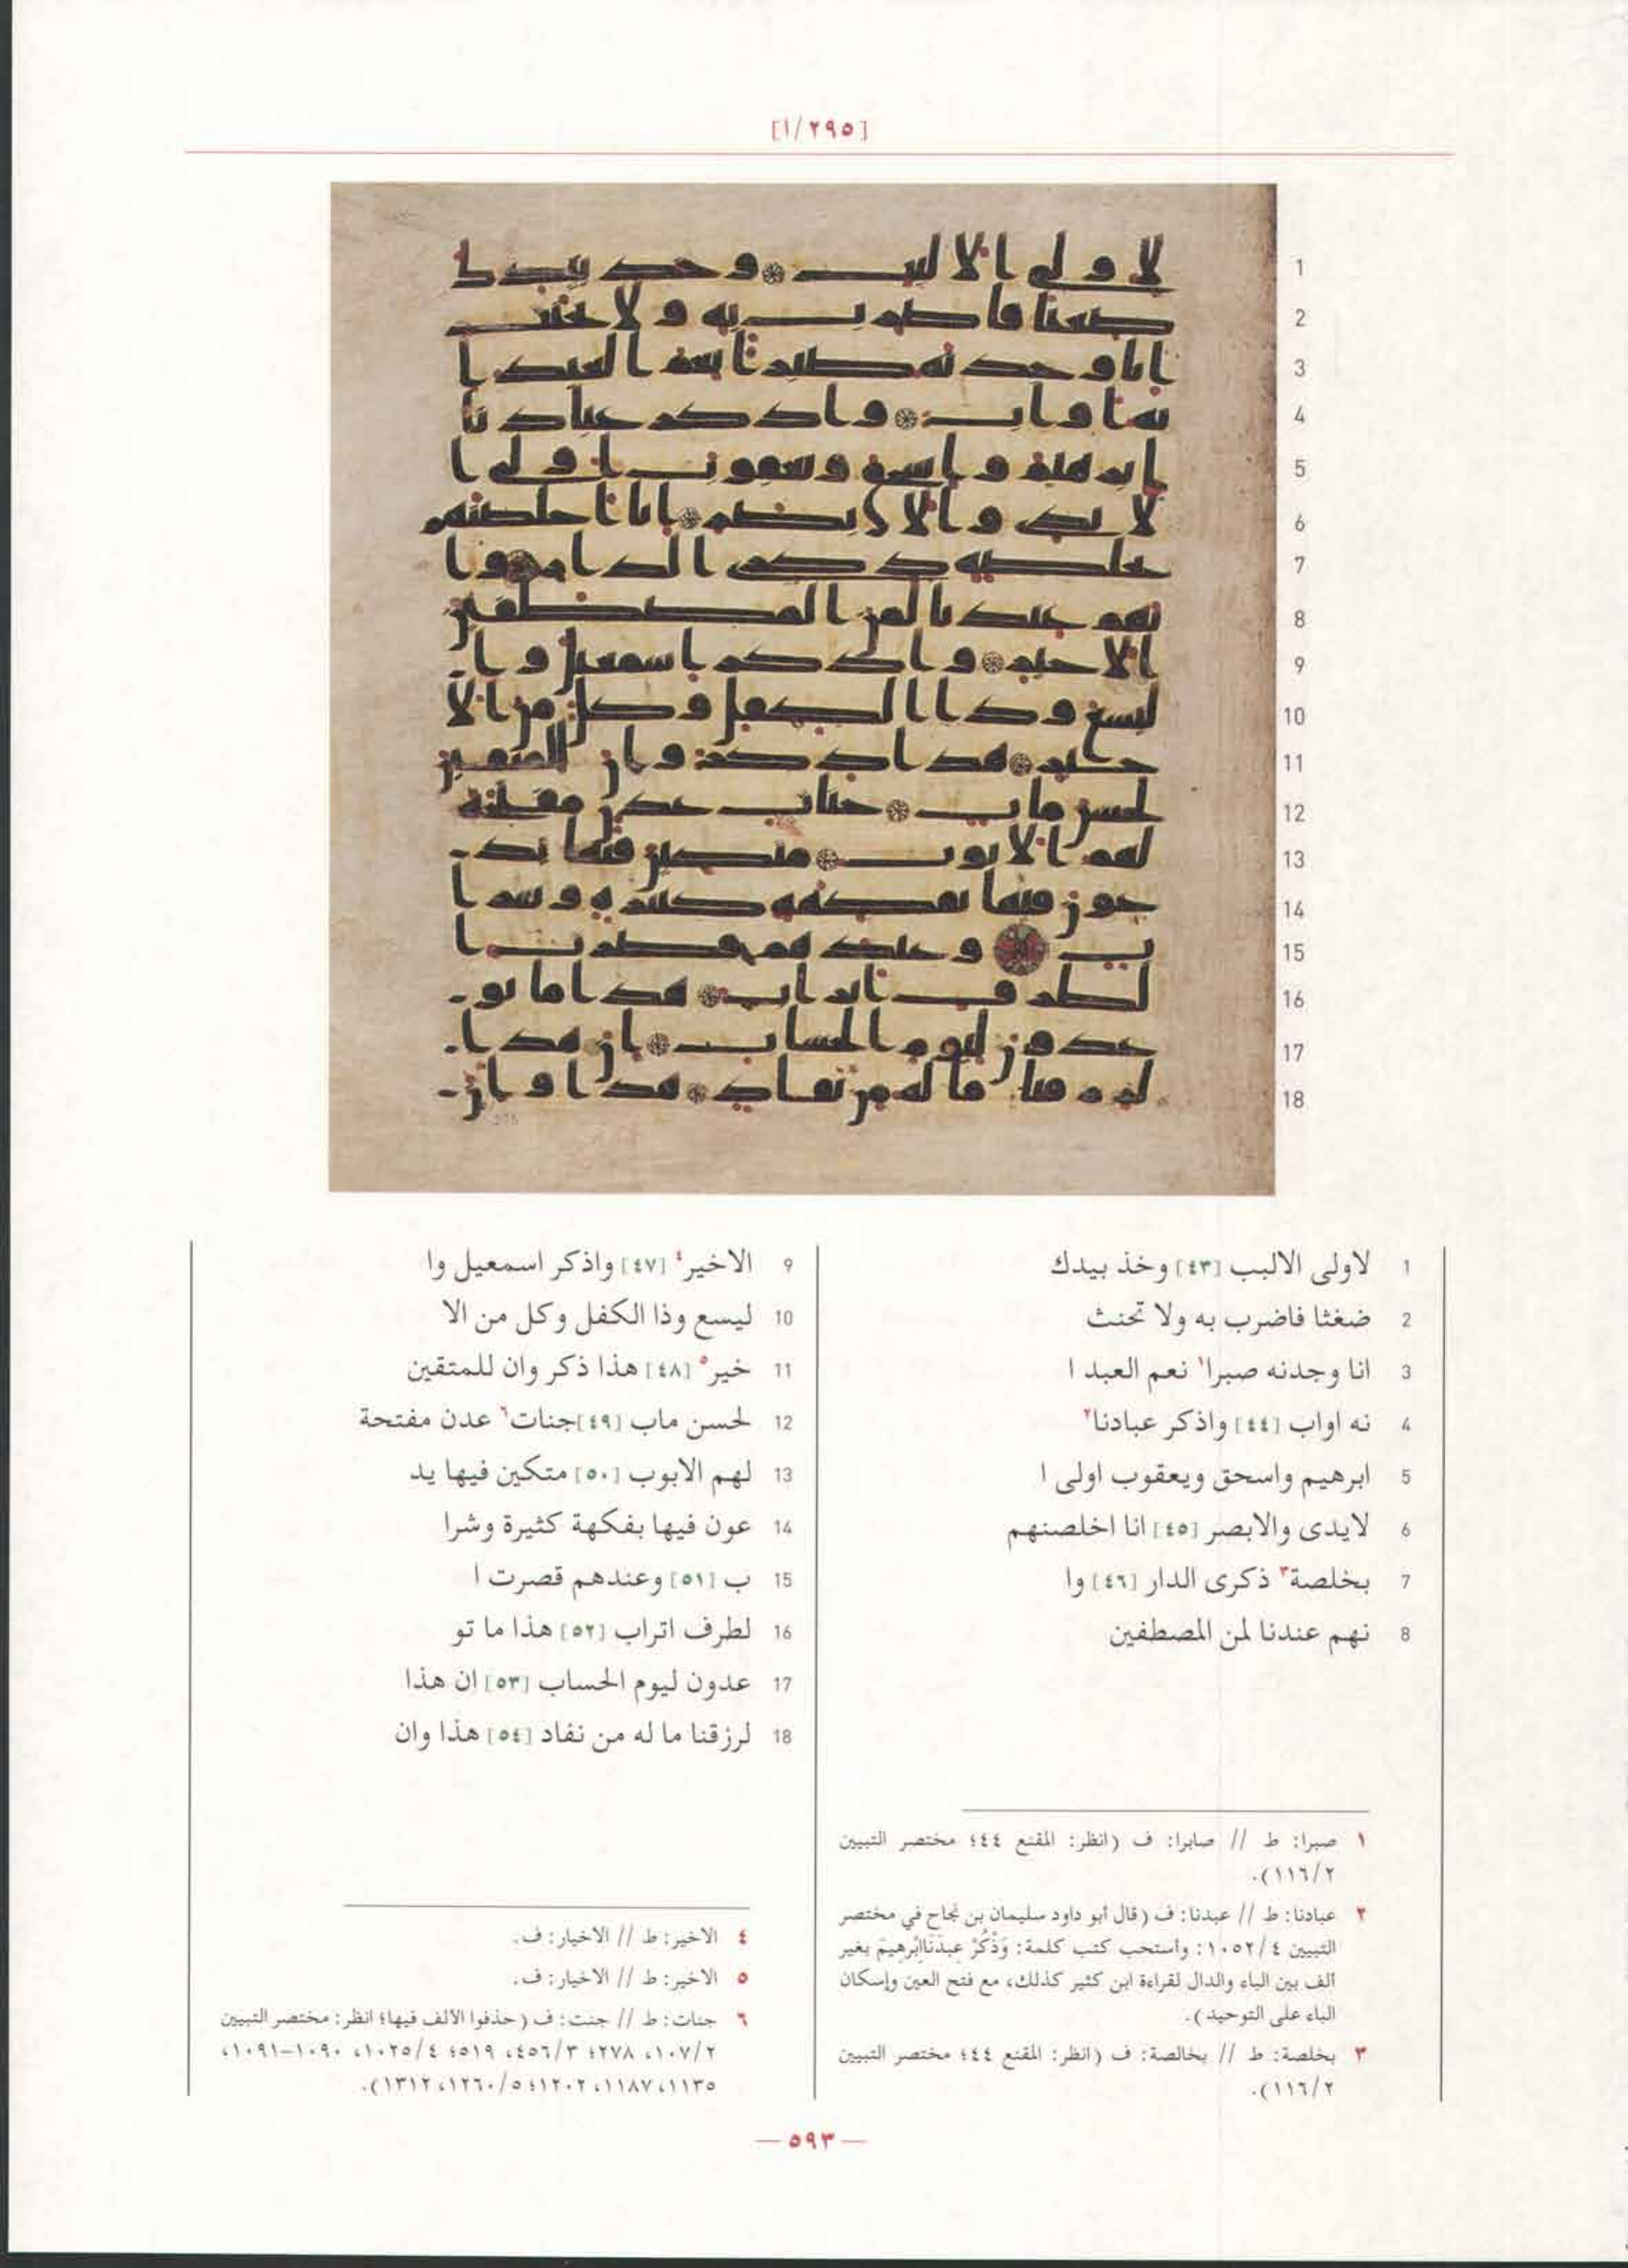 [٢٩٥/ا]
1 لاولى الالبب [٤٣] وخذ بيدك
2 ضغثا فاضرب به ولا تحنث
3 انا وجدنه صبرا١ نعم العبد ا
4 نه اواب [٤٤] واذكر عبادنا٢
5 ابرهيم واسحق ويعقوب اولى ا
6 لايدى والابصر [٤٥] انا اخلصنهم
7 بخلصة٣ ذكرى الدار [٤٦] وا
8 نهم عندنا لمن المصطفين
9 الاخير٤ [٤٧] واذكر اسمعيل وا
10 ليسع وذا الكفل وكل من الا
11 خير٥ [٤٨] هذا ذكر وان للمتقين
12 لحسن ماب [٤٩] جنات٦ عدن مفتحة
13 لهم الابوب [٥٠] متكين فيها يد
14 عون فيها بفكهة كثيرة وشرا
15 ب [٥١] وعندهم قصرت ا
16 لطرف اتراب [٥٢] هذا ما تو
17 عدون ليوم الحساب [٥٣] ان هذا
18 لرزقنا ما له من نفاد [٥٤] هذا وان
١ صبرا: ط // صابرا: ف (انظر: المقنع ٤٤؛ مختصر التبيين
١١٦/٢).
٢ عبادنا: ط // عبدنا: ف (قال أبو داود سليمان بن نجاح في مختصر
التبيين ١٠٥٢/٤: وأستحب كتب كلمة: وَذْكُرْ عِبَدَنَاإِبْرَهِيمَ بغير
ألف بين الباء والدال لقراءة ابن كثير كذلك، مع فتح العين وإسكان
الباء على التوحيد).
٣ بخلصة: ط // بخالصة: ف (انظر: المقنع ٤٤؛ مختصر التبيين
١١٦/٢).
٤ الاخير: ط // الاخيار: ف.
٥ الاخير: ط // الاخيار: ف.
٦ جنات: ط // جنت: ف (حذفوا الألف فيها؛ انظر: مختصر التبيين
١٠٧/٢، ٢٧٨؛ ٤٥٦/٣، ٥١٩؛ ١٠٢٥/٤، ١٠٩٠–١٠٩١،
١١٣٥، ١١٨٧، ١٢٠٢؛ ١٢٦٠/٥، ١٣١٢).
— ٥٩٣ —